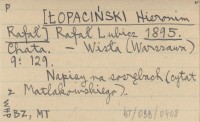 P
[ŁOPACIŃSKI Hieronim
Rafał] Rafał Lubicz 1895.
Chata. – Wisła (Warszawa)
9: 129.
Napisy na sosrębach (cytat
z Matlakowskiego).
BZ, MT